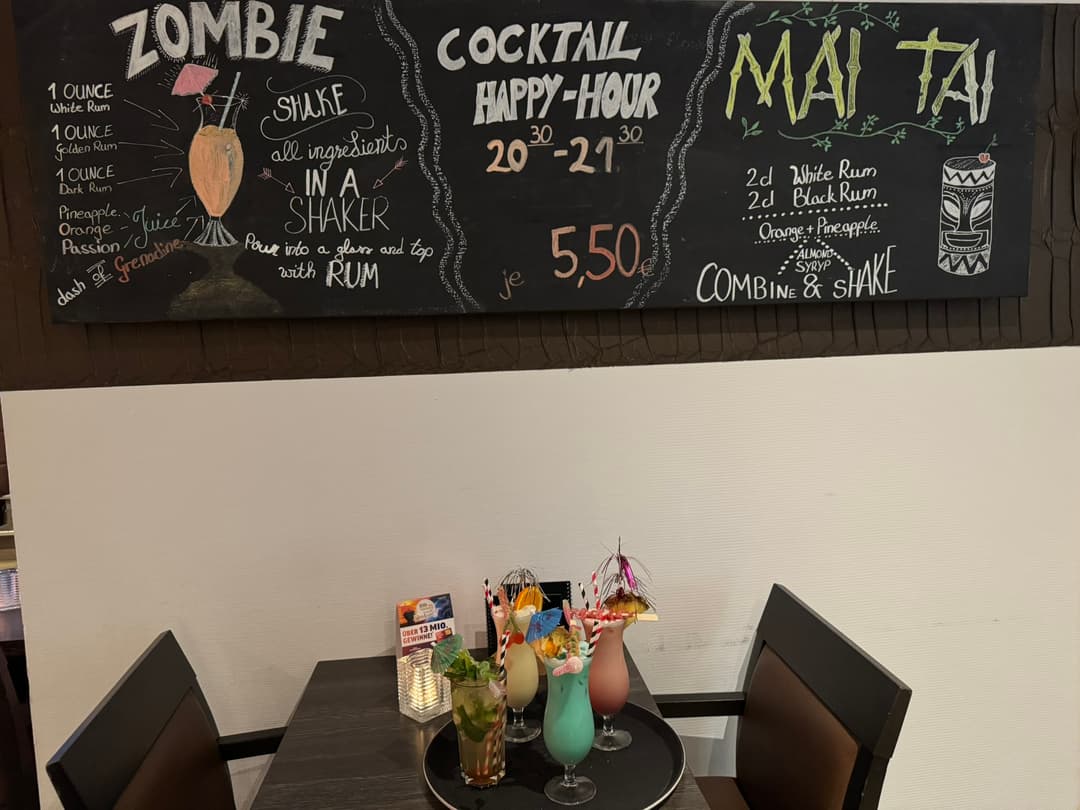 ZOMBIE
1 OUNCE
White Rum
1 OUNCE
Golden Rum
1 OUNCE
Dark Rum
Pineapple
Orange - Juice
Passion
dash of Grenadine
SHAKE
all ingredients
IN A
SHAKER
Pour into a glass and top
with RUM
COCKTAIL
HAPPY-HOUR
20 30 - 21 30
je 5,50€
MAI TAI
2cl White Rum
2cl Black Rum
Orange + Pineapple
ALMOND
SYRYP
COMBINE & SHAKE
ÜBER 13 MIO.
GEWINNE!